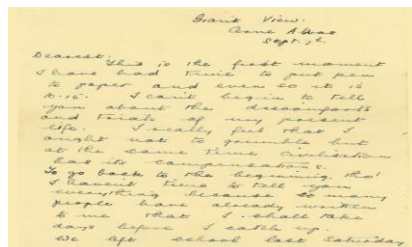 Grant View.
Sept. 7th.
Dearest.
This is the first moment
I have had time to put pen
to paper and even so it is
10.15. I can't begin to tell
you about the discomforts
and trials of my present
life. I really feel that I
ought not to grumble but
at the same time civilisation
has its compensations.
To go back to the beginning, tho'
I havent time to tell you
everything because so many
people have already written
to me that I shall take
days before I catch up.
We left school last Saturday